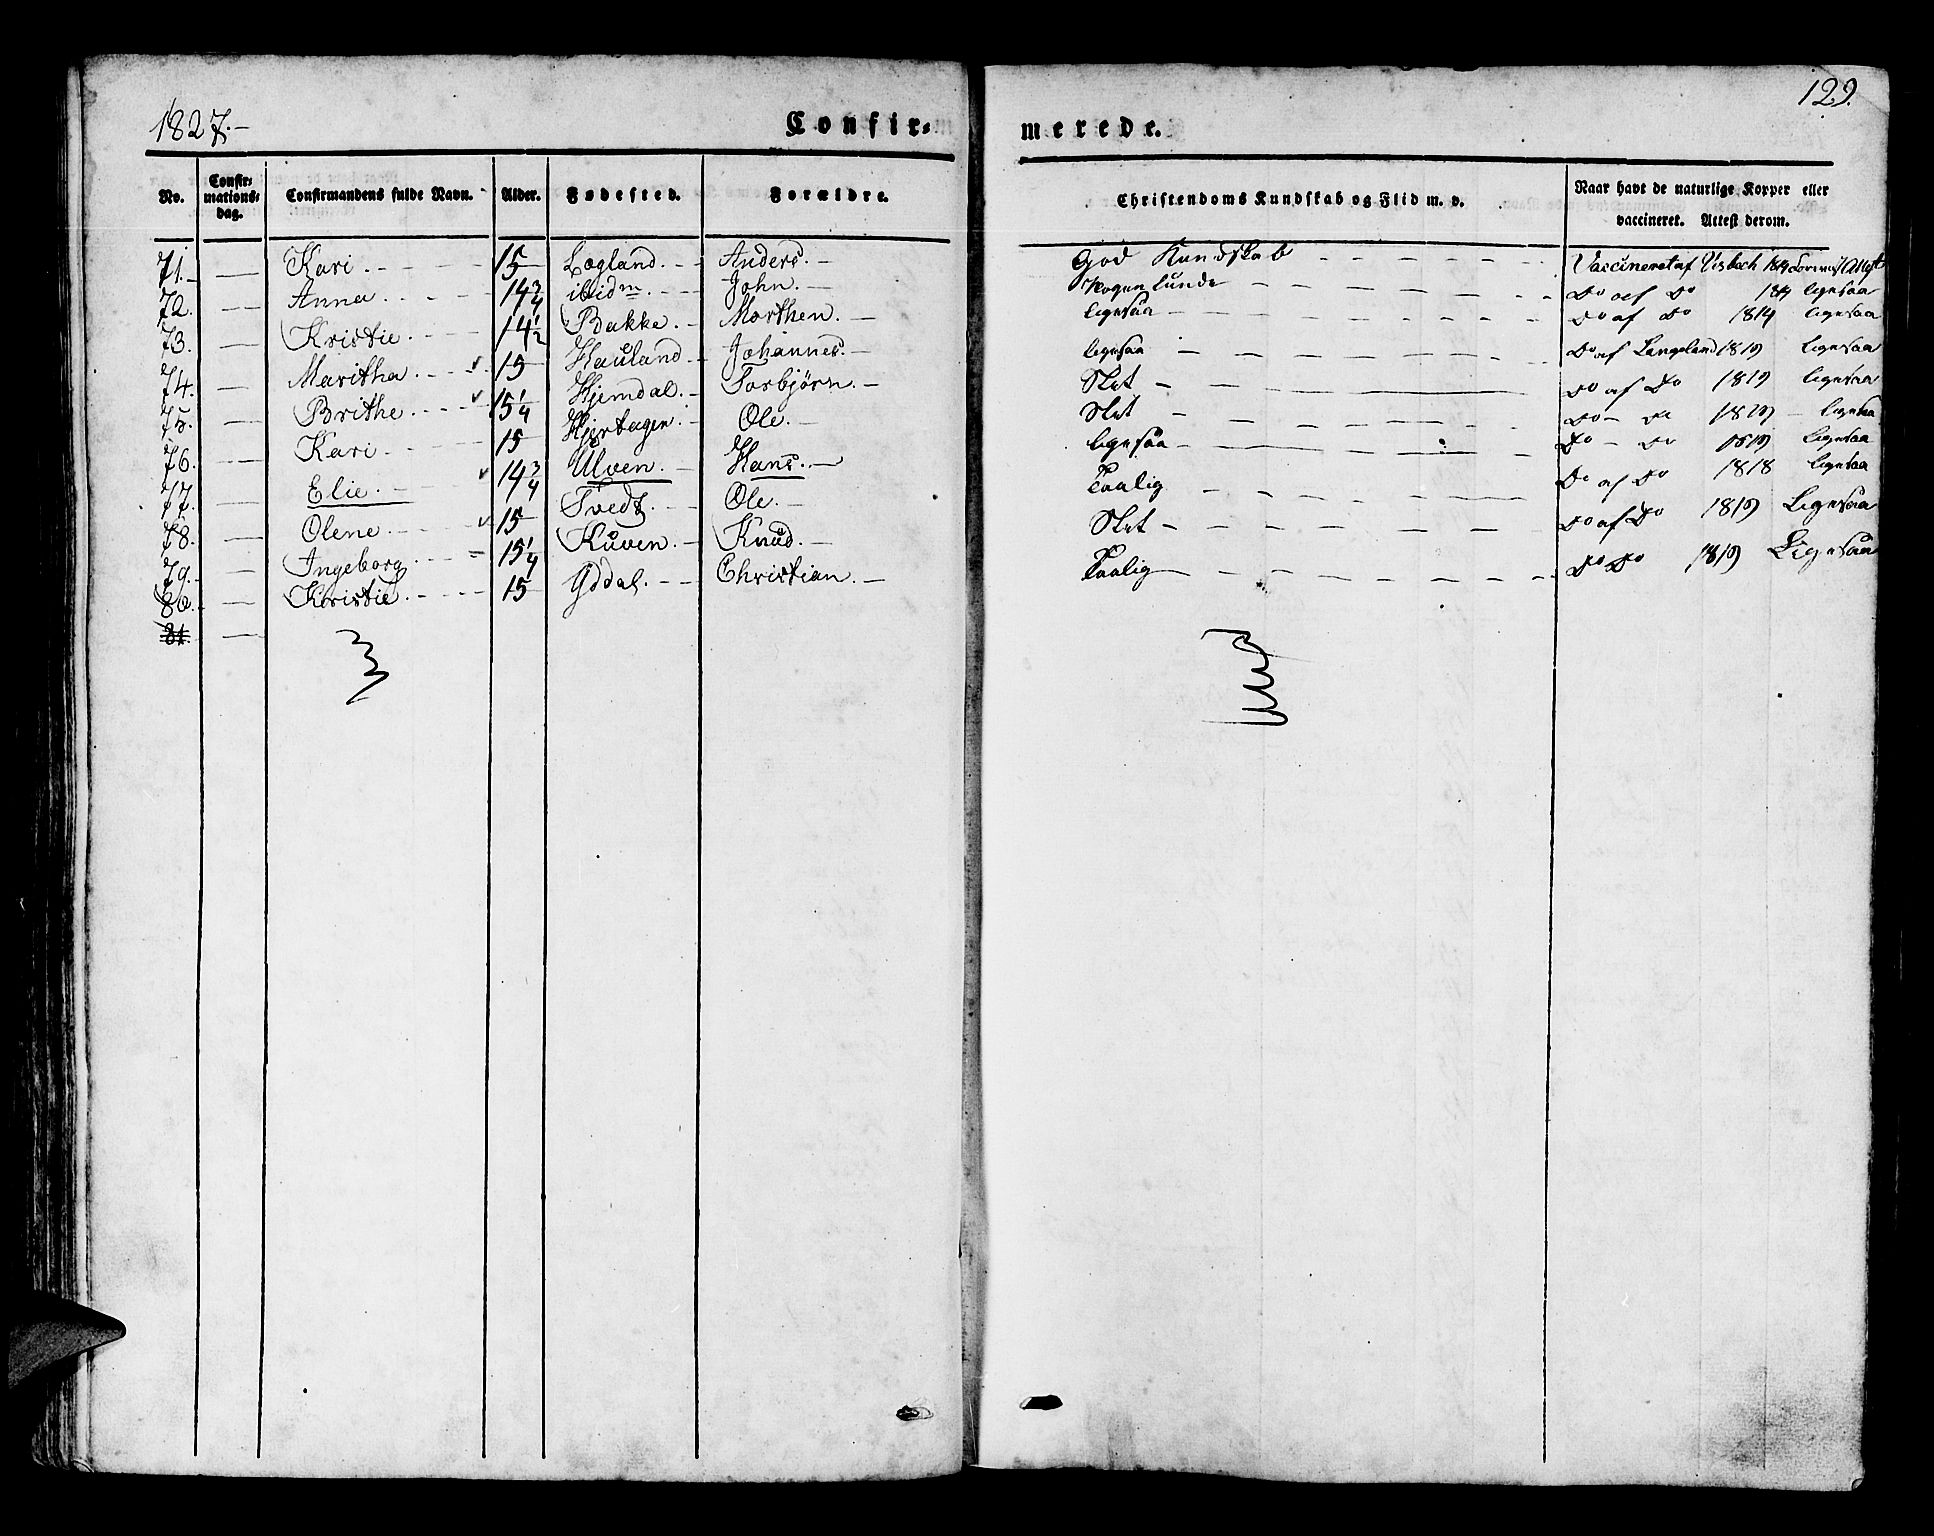 1827.-
129.
Confir- merede.
No. Confirmations-dag. Confirmandens fulde Navn. Alder. Fødested. Forældre. Christendoms Kundskab og Flid m. v. Naar havt de naturlige Kopper eller vaccineret. Attest derom.
71. — Kari. 15 Lægland. Anders. God Kundskab Vaccineret af Visbach 1814
72. — Anna. 14 3/4 ibidm. John. Nogenlunde Do af Do ligesaa
73. — Kristie. 14 1/2 Bakke. Morthen. ligesaa Do af Do 1814 ligesaa
74. — Maritha. 15 Hauland Johannes. ligesaa Do af Langeland 1819 ligesaa
75. — Brithe. 15 1/4 Hjemdal. Torbjørn. Slet Do af Do 1819 ligesaa
76. — Kari. 15 Hjortagen. Ole. Slet Do — Do 1819 — ligesaa
77. — Elie. 14 3/4 Ulven. Hans. ligesaa Do — Do 1819 ligesaa
78. — Olene. 15 Tvedt. Ole. Taalig Do af Do 1818 ligesaa
79. — Ingeborg. 15 1/4 Kuven. Knud. Slet Do af Do 1819 Ligesaa
80. — Kristie. 15 Yddal. Christian. Taalig Do Do 1819 Ligesaa
81. —